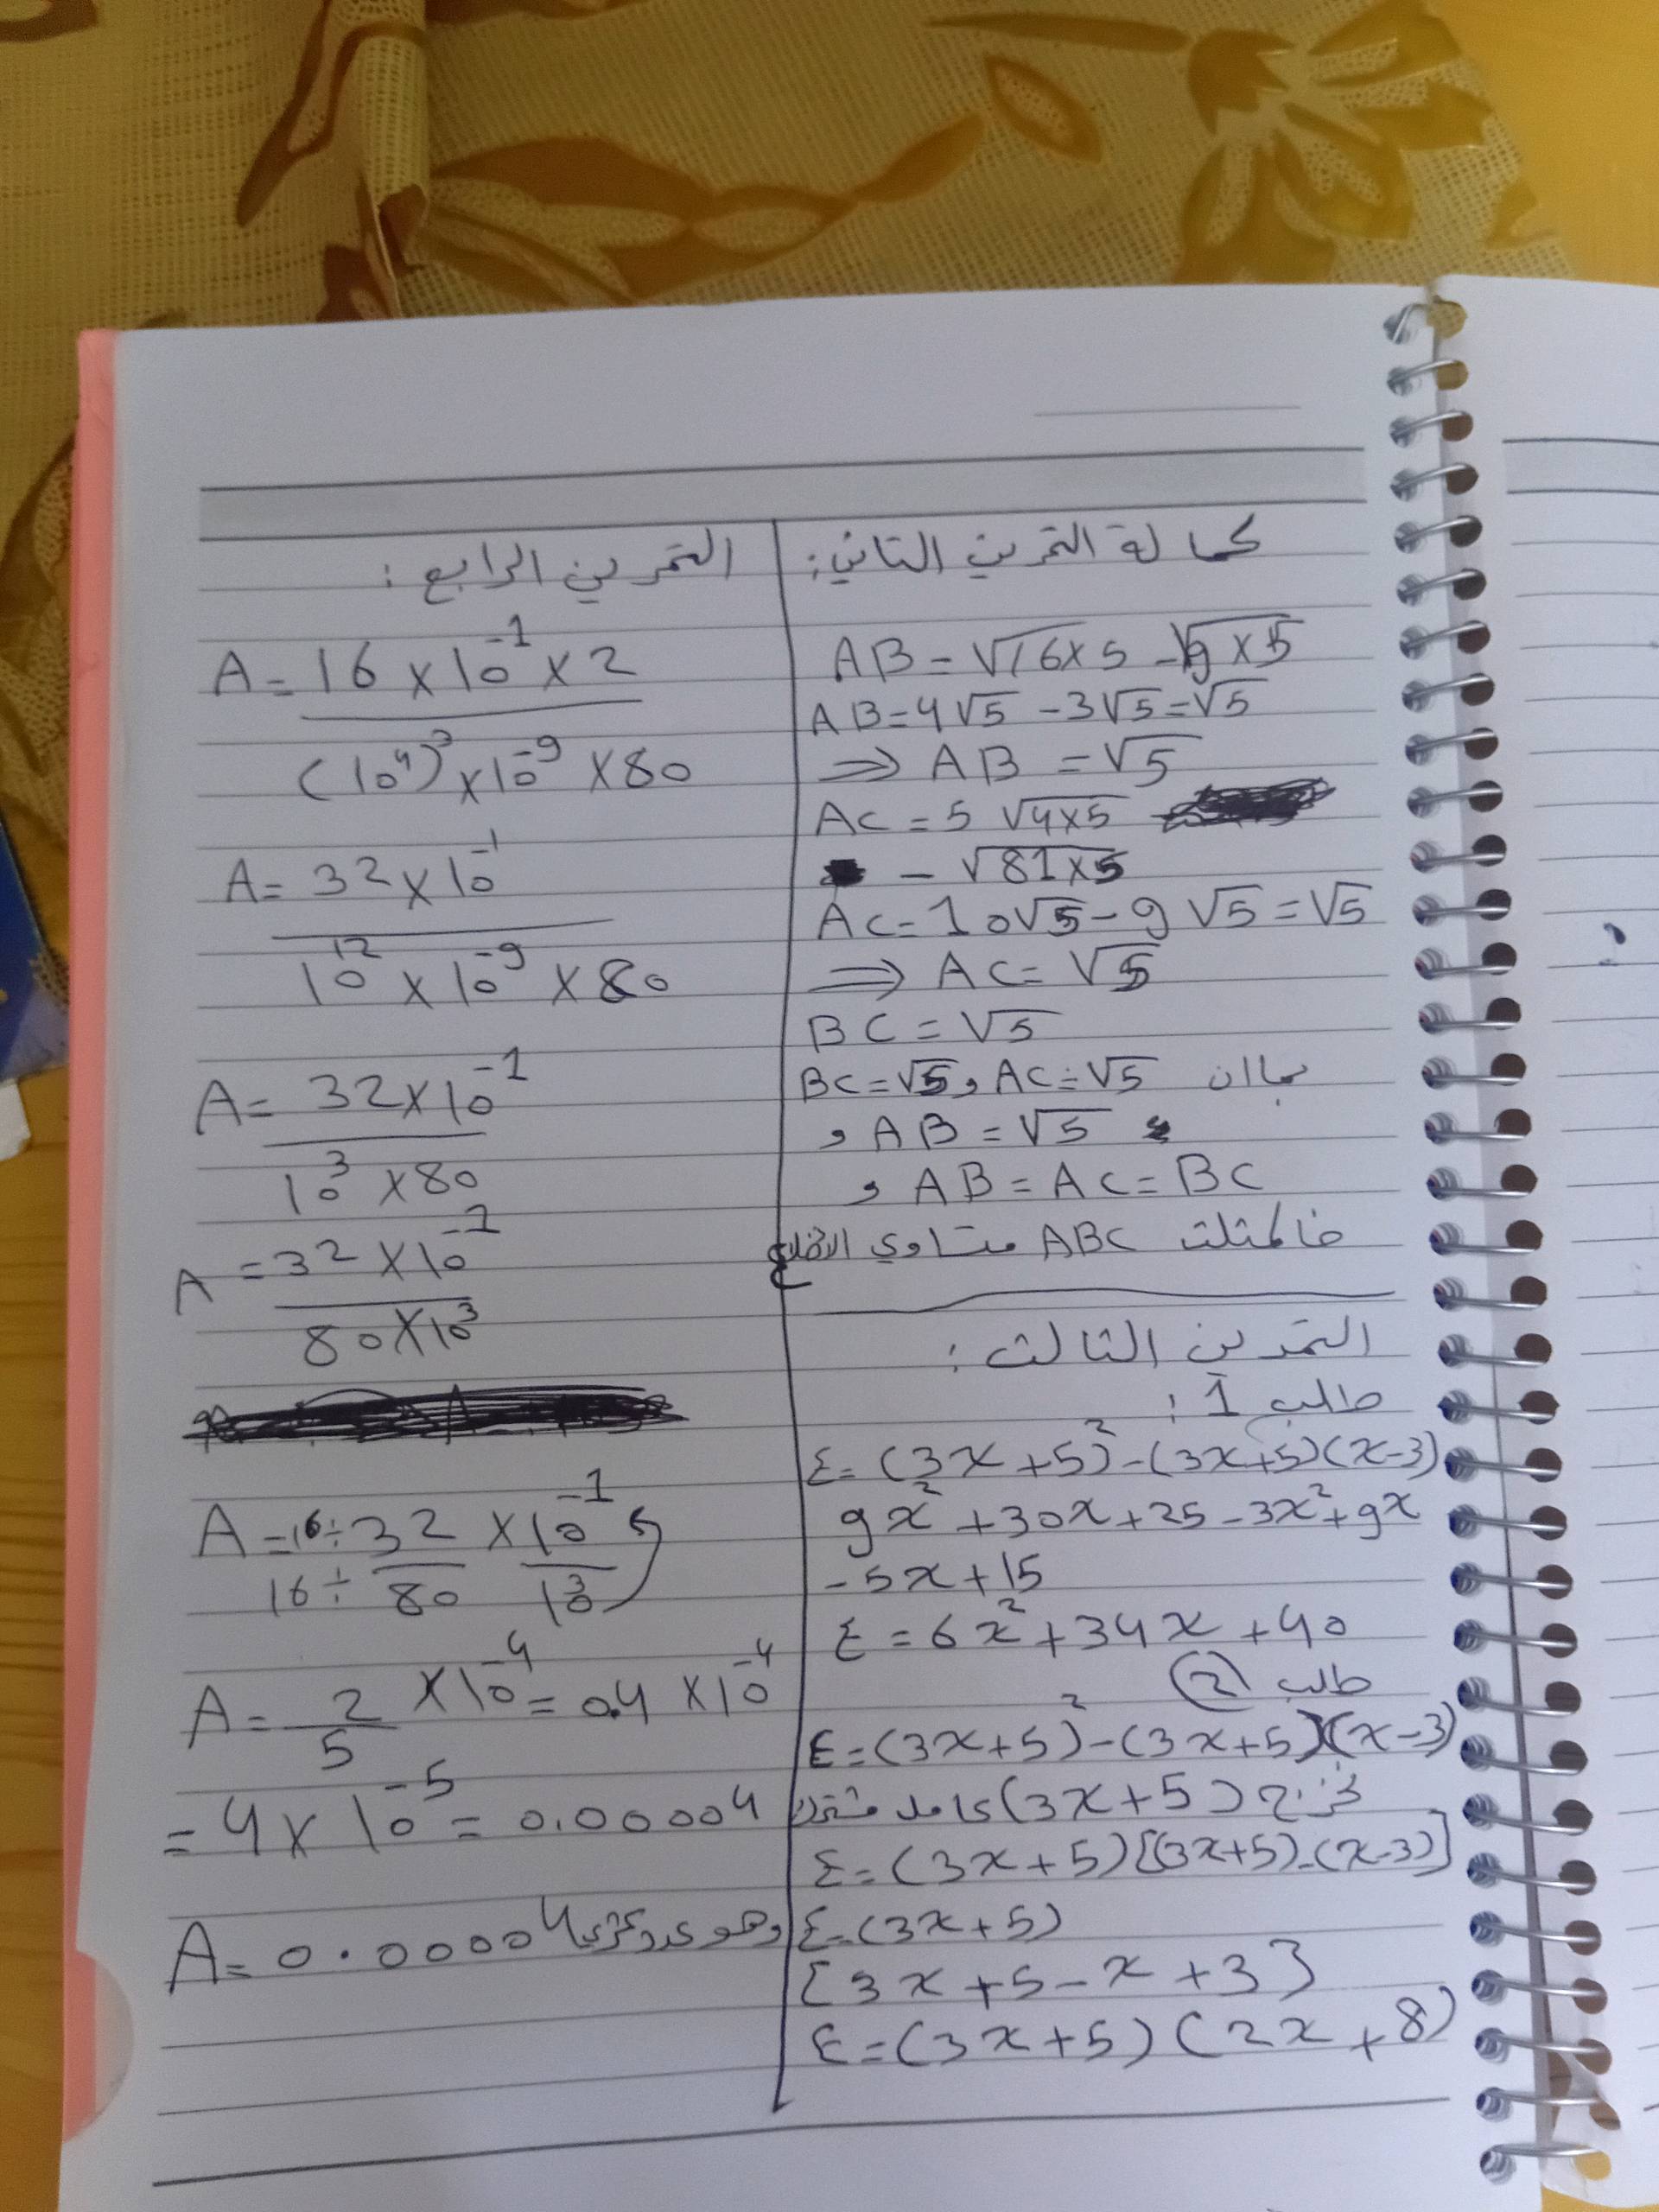 كمالة التمرين التاني:
AB = √16×5 - √9×5
AB = 4√5 - 3√5 = √5
⇒ AB = √5
AC = 5 √4×5
- √81×5
AC = 10√5 - 9√5 = √5
⇒ AC = √5
BC = √5
بما ان BC = √5 و AC = √5
و AB = √5
و AB = AC = BC
فالمثلث ABC متساوي الاضلاع
التمرين الثالث:
طلب 1:
E = (3x+5)² - (3x+5)(x-3)
9x² + 30x + 25 - 3x² + 9x
- 5x + 15
E = 6x² + 34x + 40
طلب 2
E = (3x+5)² - (3x+5)(x-3)
نخرج (3x+5) كامد مشترك
E = (3x+5)[(3x+5)-(x-3)]
E = (3x+5)
[3x+5-x+3]
E = (3x+5)(2x+8)
التمرين الرابع:
A = 16 × 10⁻¹ × 2
(10⁴)³ × 10⁻⁹ × 80
A = 32 × 10⁻¹
10¹² × 10⁻⁹ × 80
A = 32 × 10⁻¹
10³ × 80
A = 32 × 10⁻¹
80 × 10³
A = 16÷ 32 × 10⁻¹
16÷ 80 10³
A = 2/5 × 10⁻⁴ = 0.4 × 10⁻⁴
= 4 × 10⁻⁵ = 0.00004
A = 0.00004 وهو عدد عشري